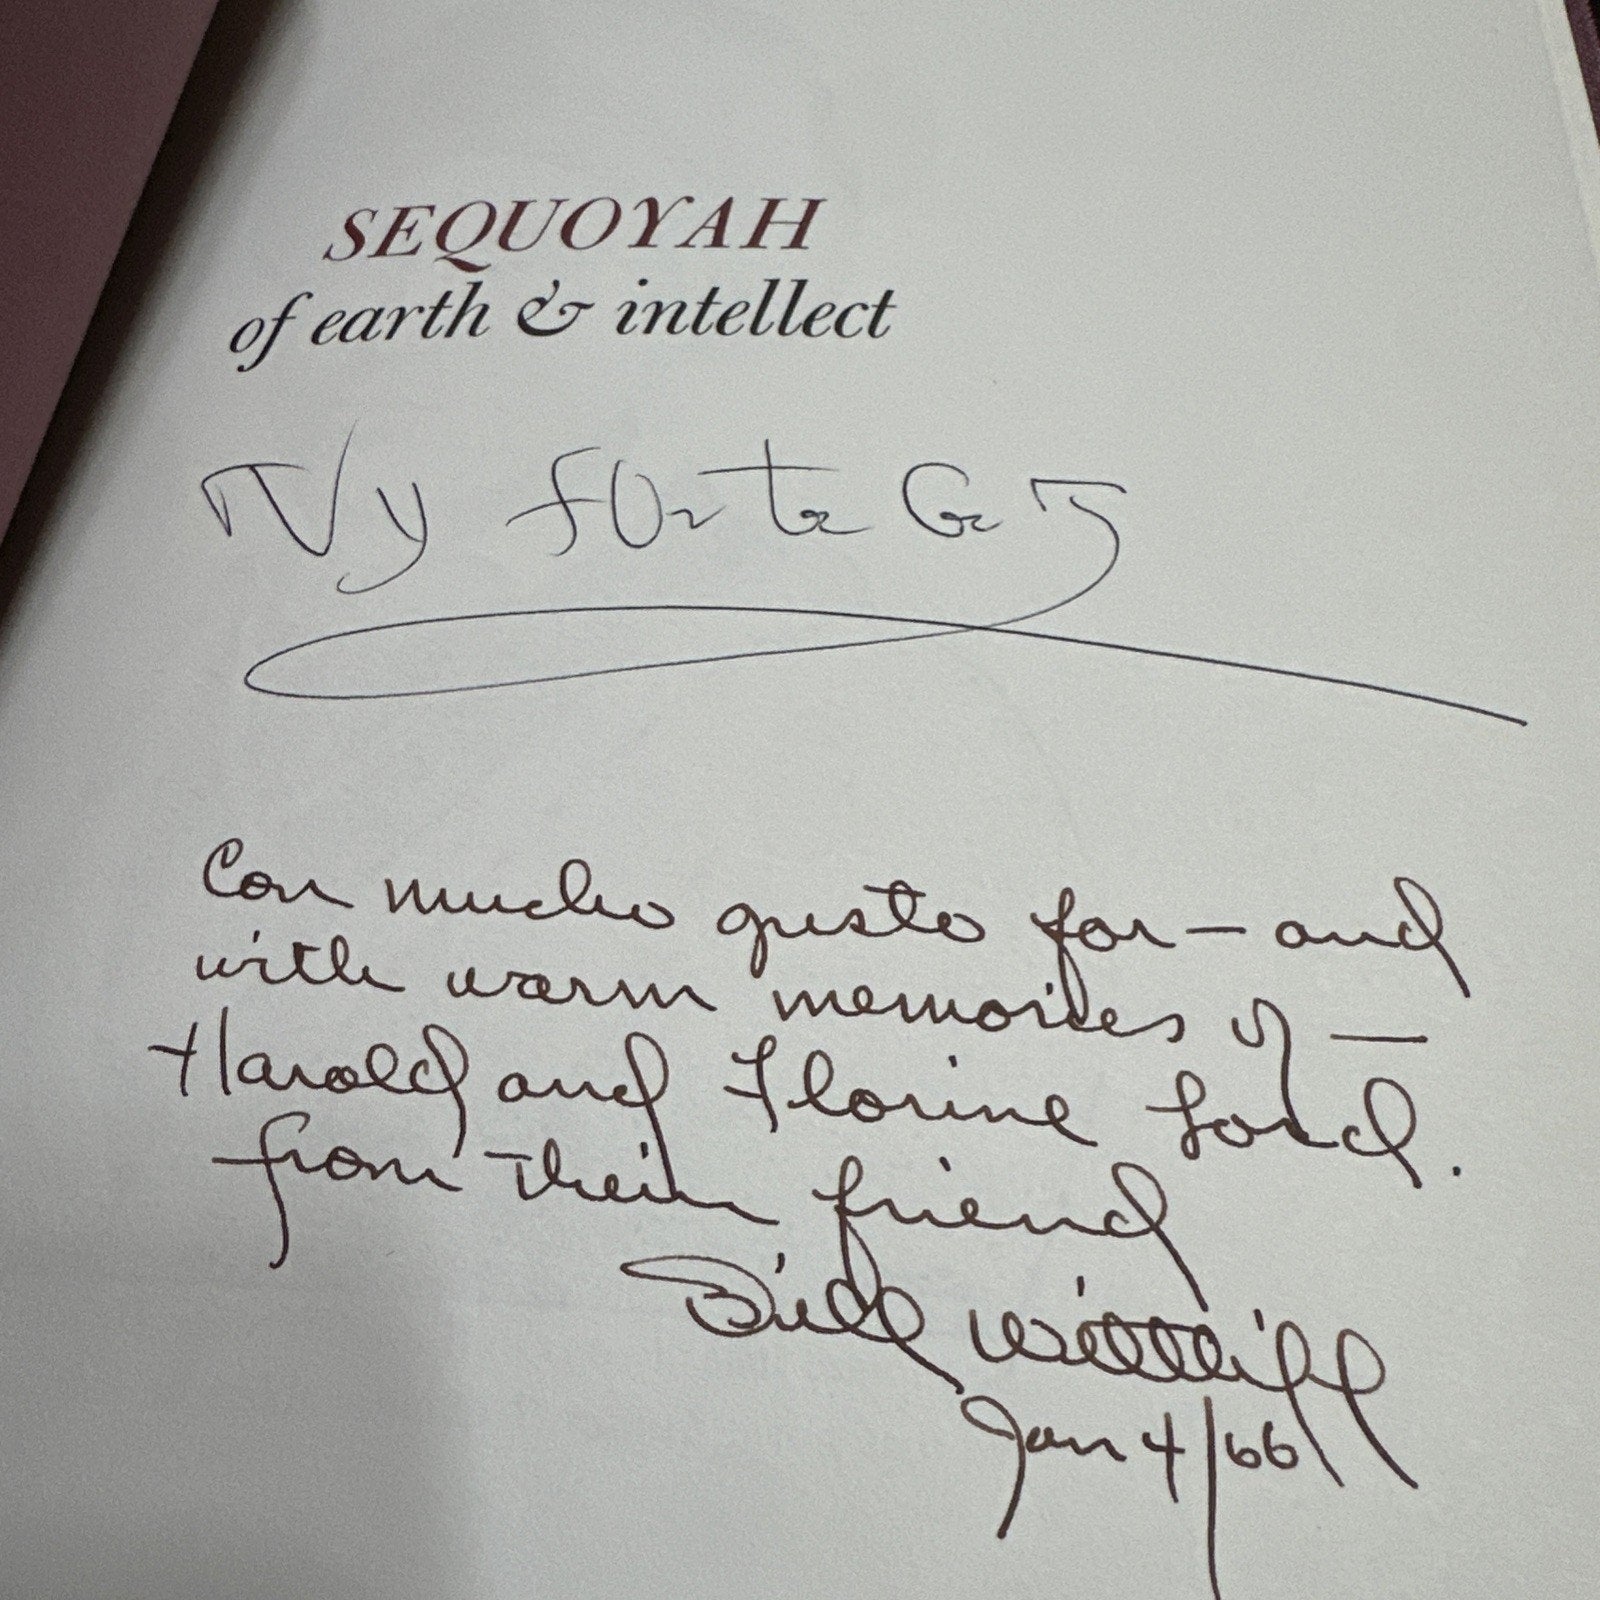 SEQUOYAH
of earth & intellect
Con mucho gusto for — and
with warm memories of —
Harold and Florine Lord.
from their friend
Bill Wittliff
Jan 4/66